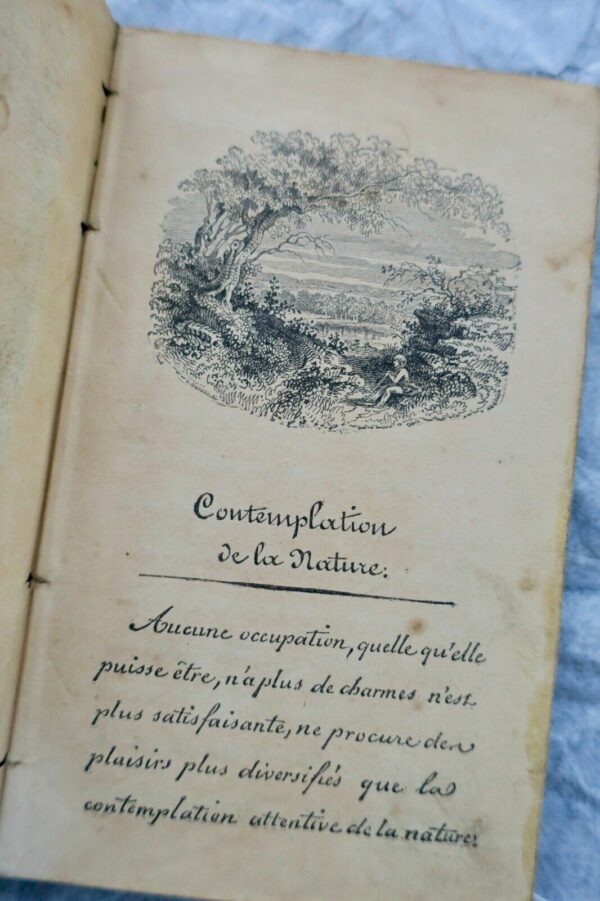 Contemplation
de la Nature.
Aucune occupation, quelle qu'elle
puisse être, n'a plus de charmes n'est
plus satisfaisante, ne procure des
plaisirs plus diversifiés que la
contemplation attentive de la nature.